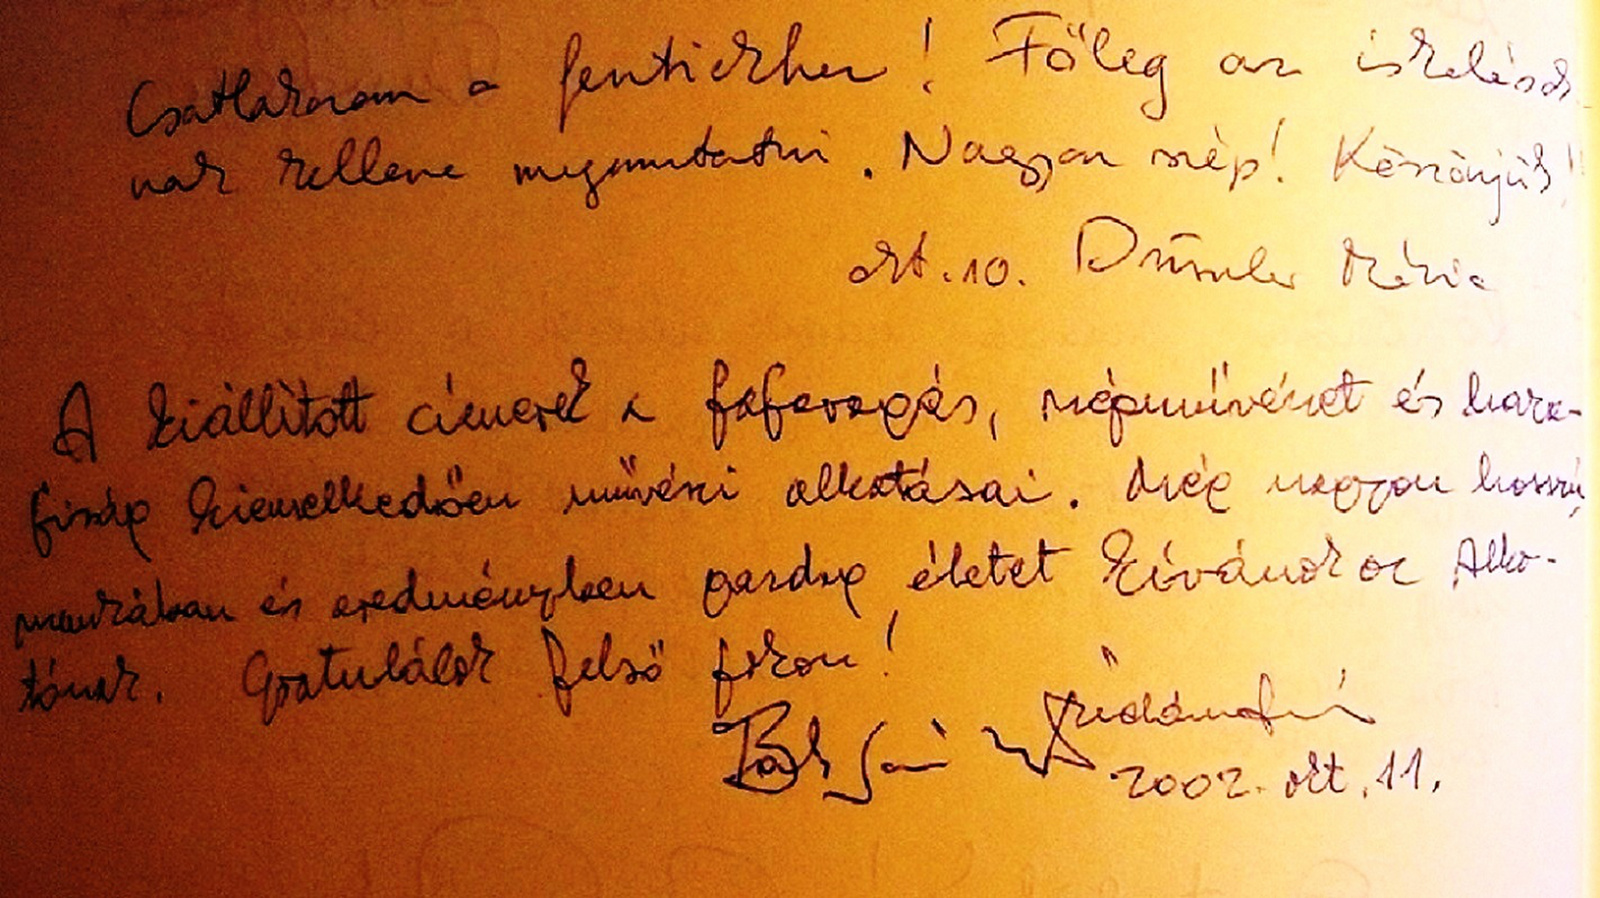 Csatlakozom a fentiekhez! Főleg az iskolások-
nak kellene megmutatni. Nagyon szép! Köszönjük!
okt. 10. Mária
A kiállított címerek a fafaragás, népművészet és haza-
fiság kiemelkedően művészi alkotásai. Még nagyon hosszú,
munkában és eredményben gazdag életet kívánok az Alko-
tónak. Gratulálok felső fokon!
2002. okt. 11.